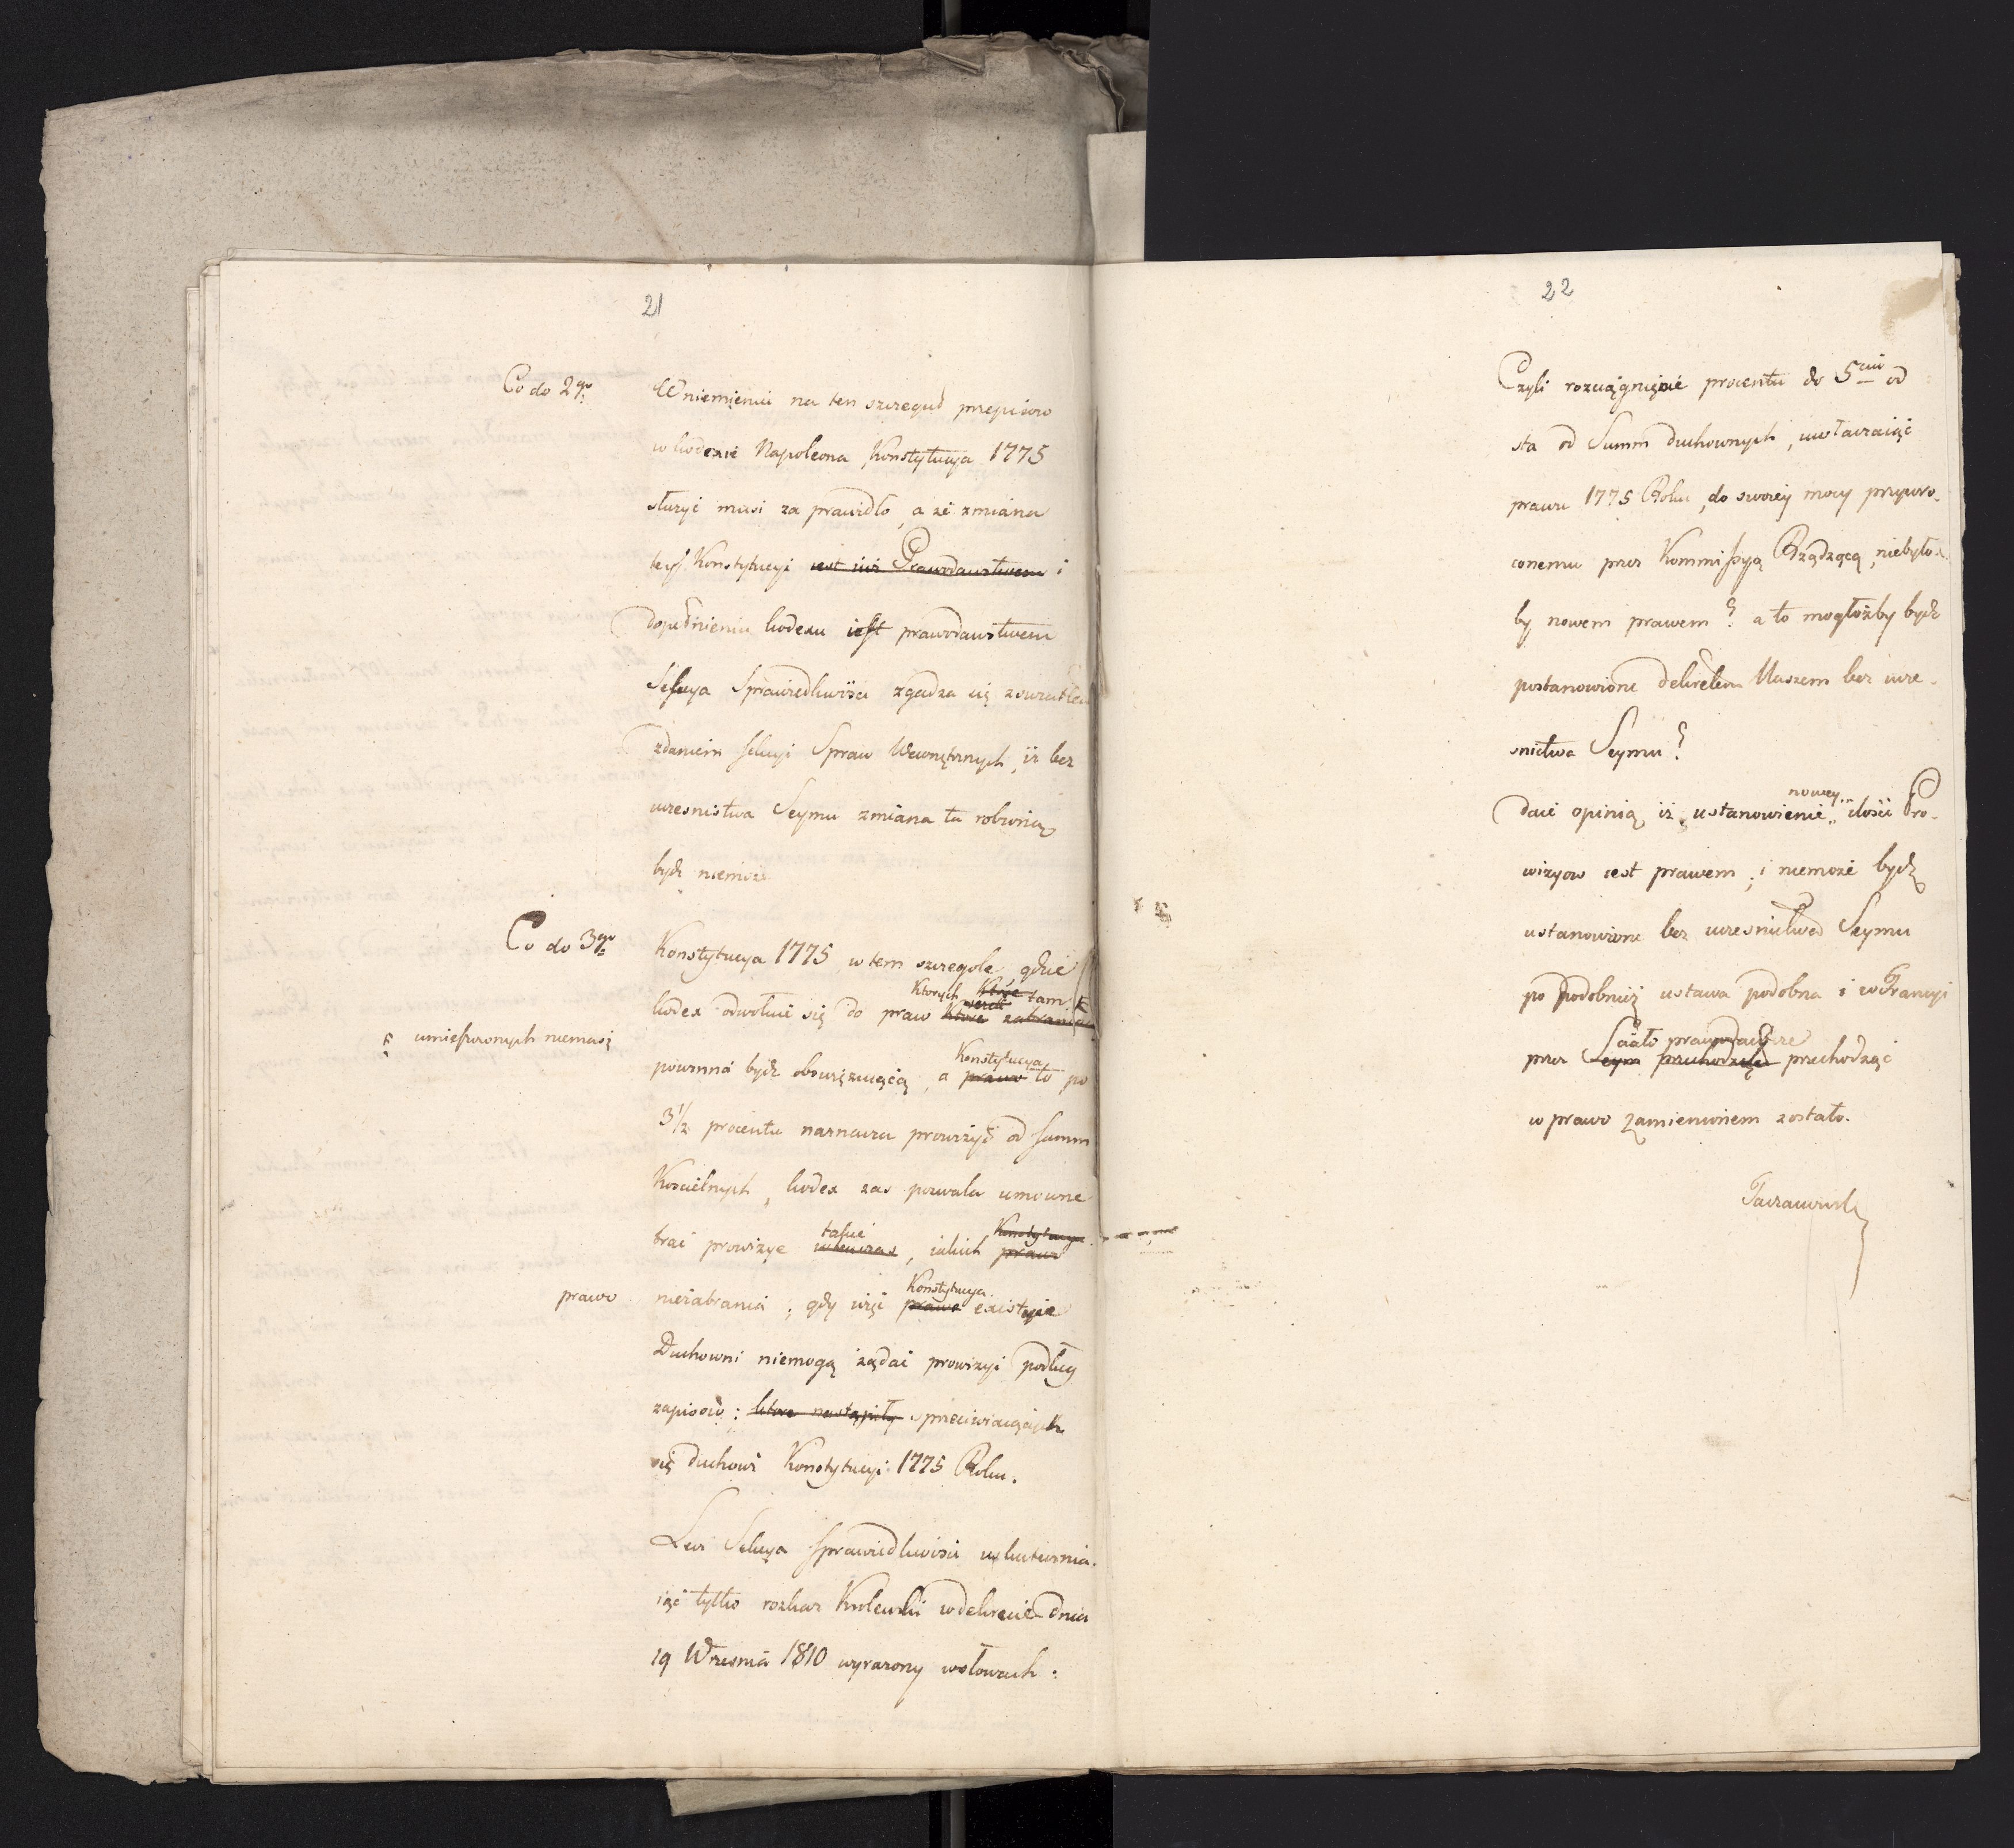 21
Co do 2go
W niemieniu na ten szczeguł przepisow
w kodexie Napoleona Konstytucya 1775
służyć musi za prawidło, a że zmiana
tey Konstytucyi iest iuż Prawodawstwem i
dopełnieniu kodexu iest prawodawstwem
Sekcya Sprawiedliwości zgadza się
zdaniem sekcyi Spraw Wewnętrznych, iż bez
uczesnistwa Seymu zmiana ta robioną
bydź niemoże
Co do 3go
Konstytucya 1775 w tem szczegole, gdzie
Ktorych które tam
kodex odwołuie się do praw ktore zabrania
umieszczonych niemasz
Konstytucya
powinna bydź obowięzuiącą, a prawo to po
3 1/2 procentu naznacza prowizyi od summ
Koscielnych, kodex zas pozwala umowne
takie Konstytucya
brać prowizye wówczas, iakich prawo
Konstytucya
prawo niezabrania; gdy więc prawo exystuie
Duchowni niemogą żądać prowizyi podług
zapisow; ktore nastąpiły sprzeciwiaiących
się duchowi Konstytucyi 1775 Roku.
Lecz Sekcya Sprawiedliwości uskutecznia-
iąc tylko rozkaz Krolewski w dekrecie dnia
19 Wrzesnia 1810 wyrazony w słowach:
22
Czyli rozciągnięcie procentu do 5ciu od
sta od Summ duchownych, uwłaczaiąc
prawu 1775 Roku, do swoiey mocy przywro-
conemu przez Kommissyą Rządzącą, niebyło-
by nowem prawem? a to mogłożby bydź
postanowione dekretem Naszem bez ucze-
snictwa Seymu?
nowey
daie opinią iż ustanowienie ilości Pro-
wizyow iest prawem; i niemoże bydź
ustanowione bez uczesnictwa Seymu
po podobnież ustawa podobna i w Francyi
Ciało prawodawcze
przez Seym przechodząc przechodząc
w prawo zamienionem zostało.